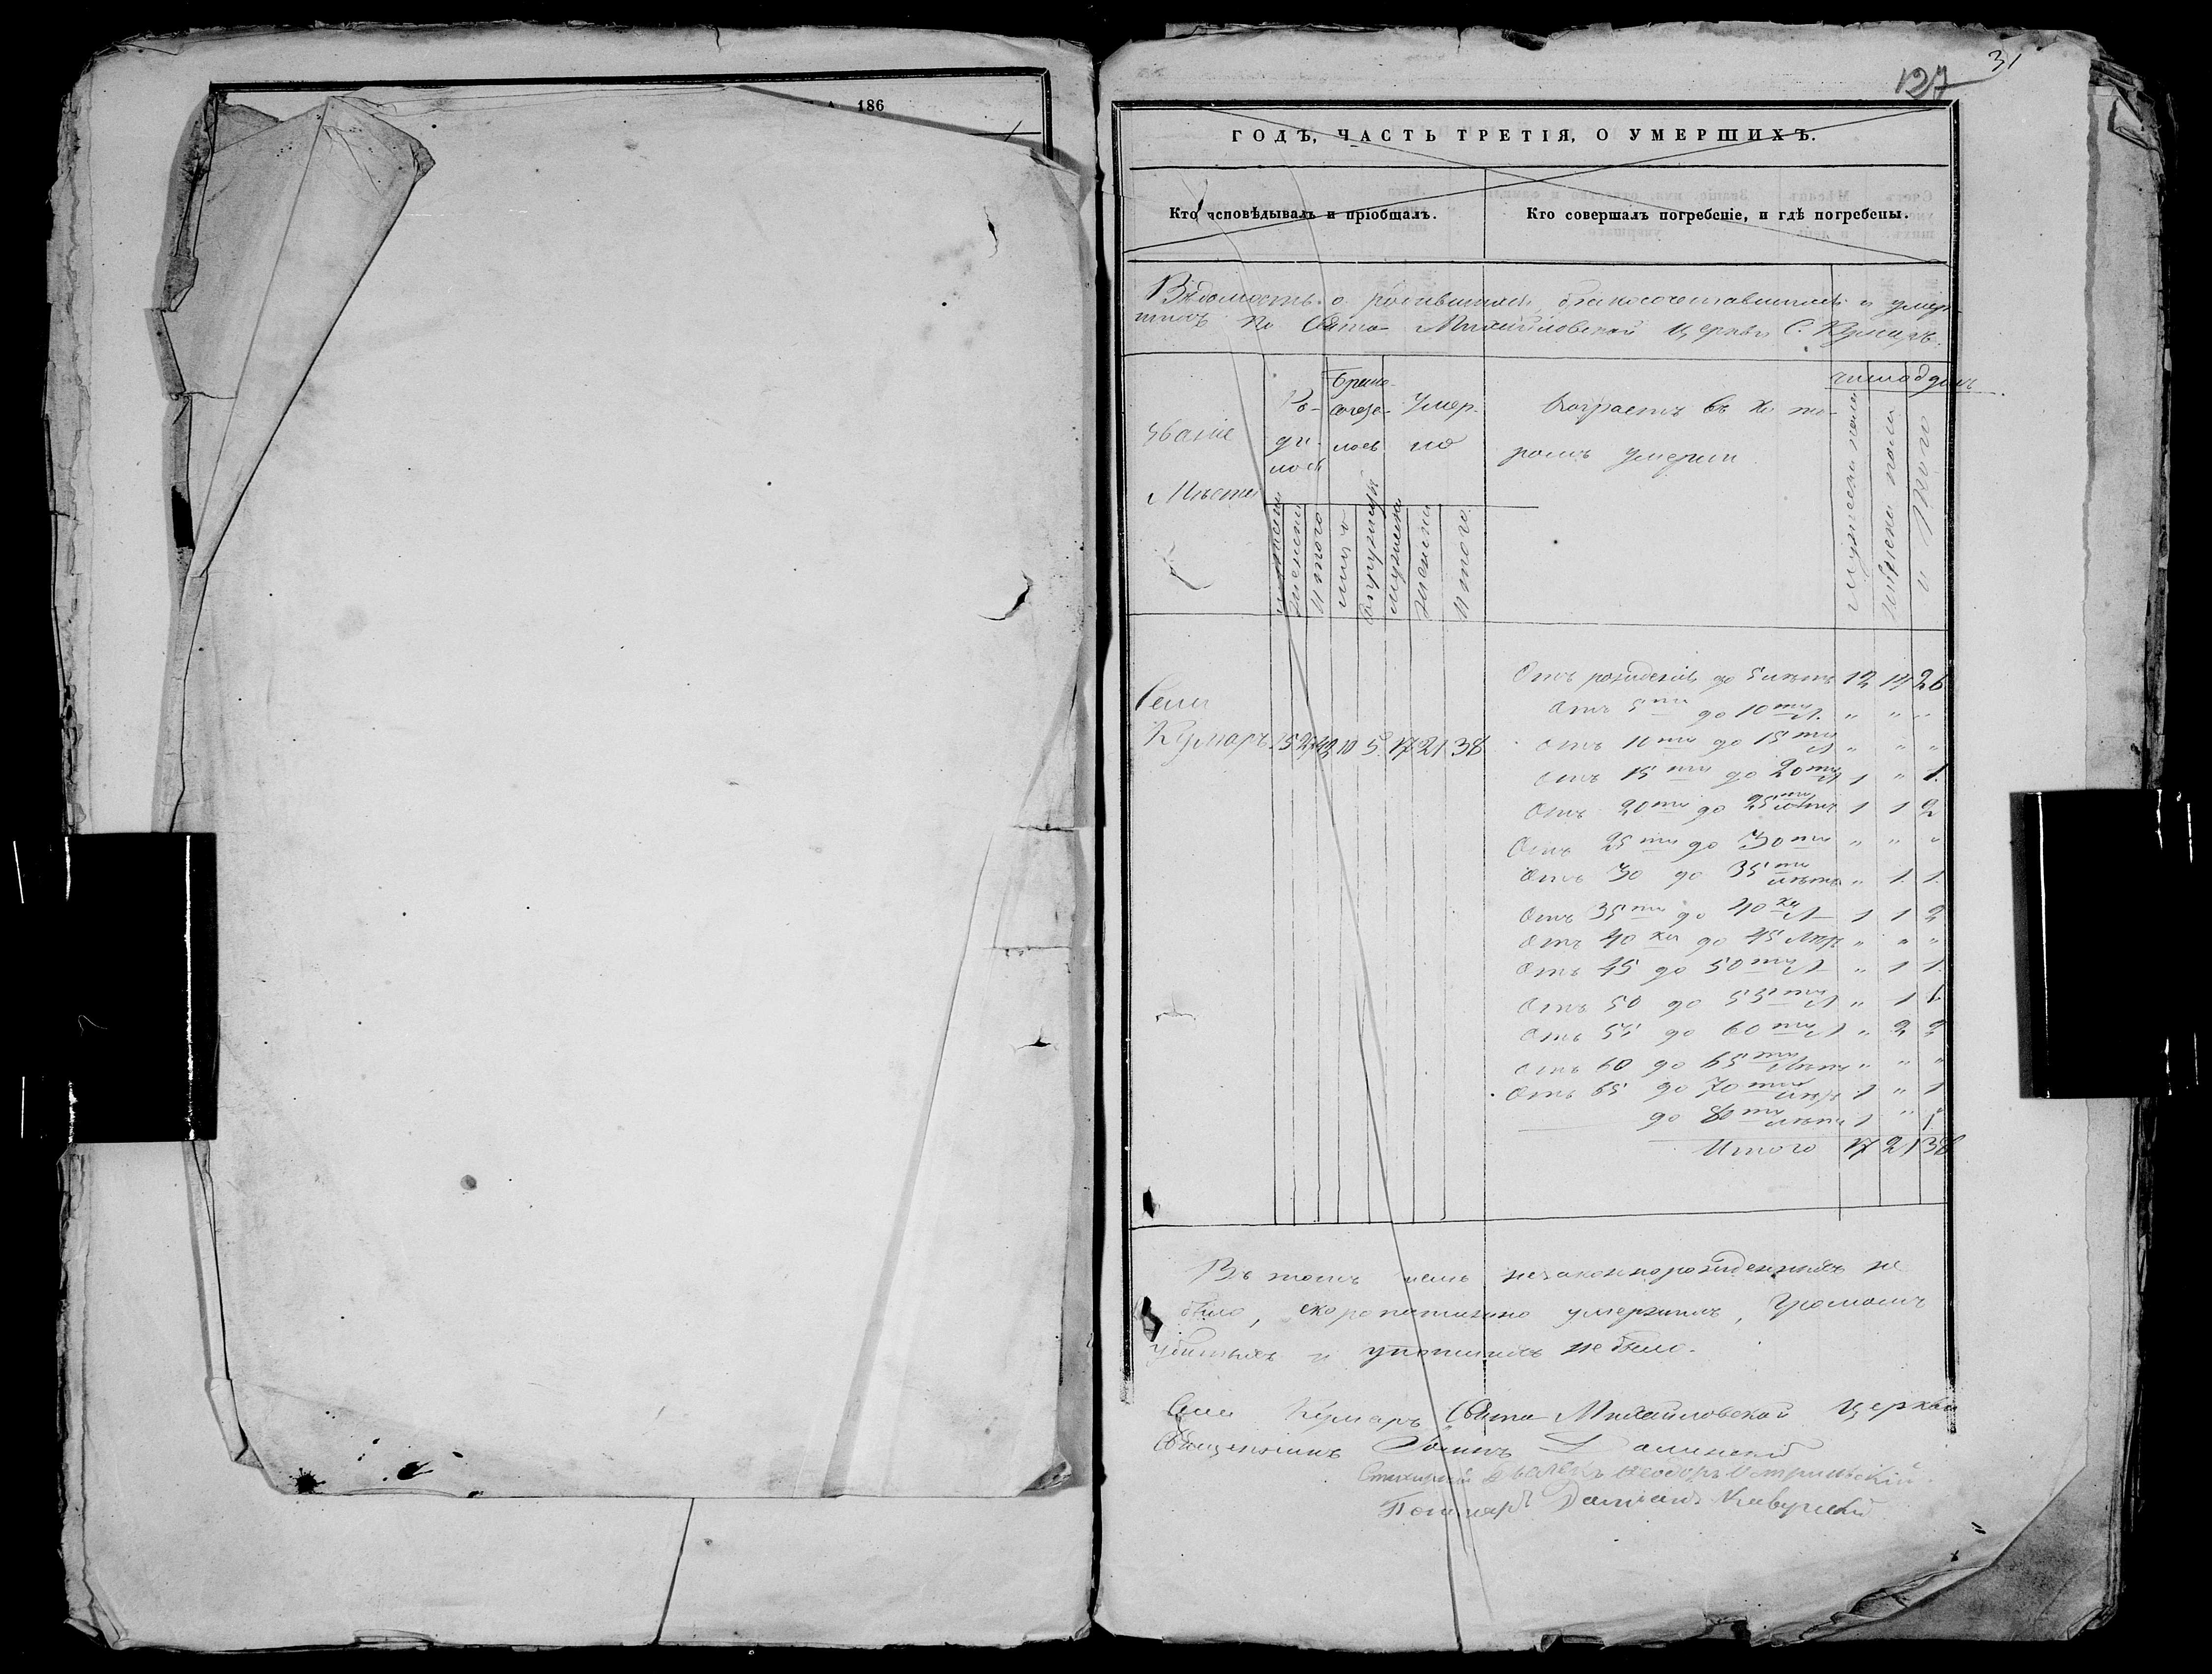 186
31
127
ГОДЪ, ЧАСТЬ ТРЕТІЯ, О УМЕРШИХЪ.
Кто исповѣдывалъ и пріобщалъ.
Кто совершалъ погребеніе, и гдѣ погребены.
Вѣдомость о родившихся, бракосочетавшихся и умер-
шихъ по Свято-Михайловской церкви С. Кумаръ.
Званіе
Мѣста
Ро-
ди-
лось
Брако-
лось
Умер-
ло
Возрастъ въ ко то-
ромъ умерли
мужеска
женска
итого
мужеска
женска
итого
мужеска пола
женска пола
итого
Села
Кумаръ 10 5 17 21 38
Отъ рожденія до 5 лѣтъ 12 14 26
Отъ 5ти до 10ти Л. " " "
Отъ 10ти до 15ти Л " " "
Отъ 15ти до 20ти Л 1 " 1.
Отъ 20ти до 25ти лѣтъ 1 1 2
Отъ 25ти до 30ти " " "
Отъ 30 до 35ти лѣтъ " 1. 1.
Отъ 35ти до 40ка Л 1 1 2
Отъ 40ка до 45 лѣтъ " " "
Отъ 45 до 50ти Л " 1 1.
Отъ 50 до 55ти Л " 1 1.
Отъ 55 до 60ти Л " 2 2
Отъ 60 до 65ти лѣтъ " " "
Отъ 65 до 70ти лѣтъ 1 " 1
до 80ти лѣтъ 1 " 1.
Итого 17 21 38
Въ томъ числѣ незаконнорожденныхъ не
было, скоропостижно умершихъ, громомъ
убитыхъ и утопшихъ не было.
Села Кумаръ Свято-Михайловской церкви
Священникъ
Дьячекъ Ѳеодоръ
Пономарь Даміанъ